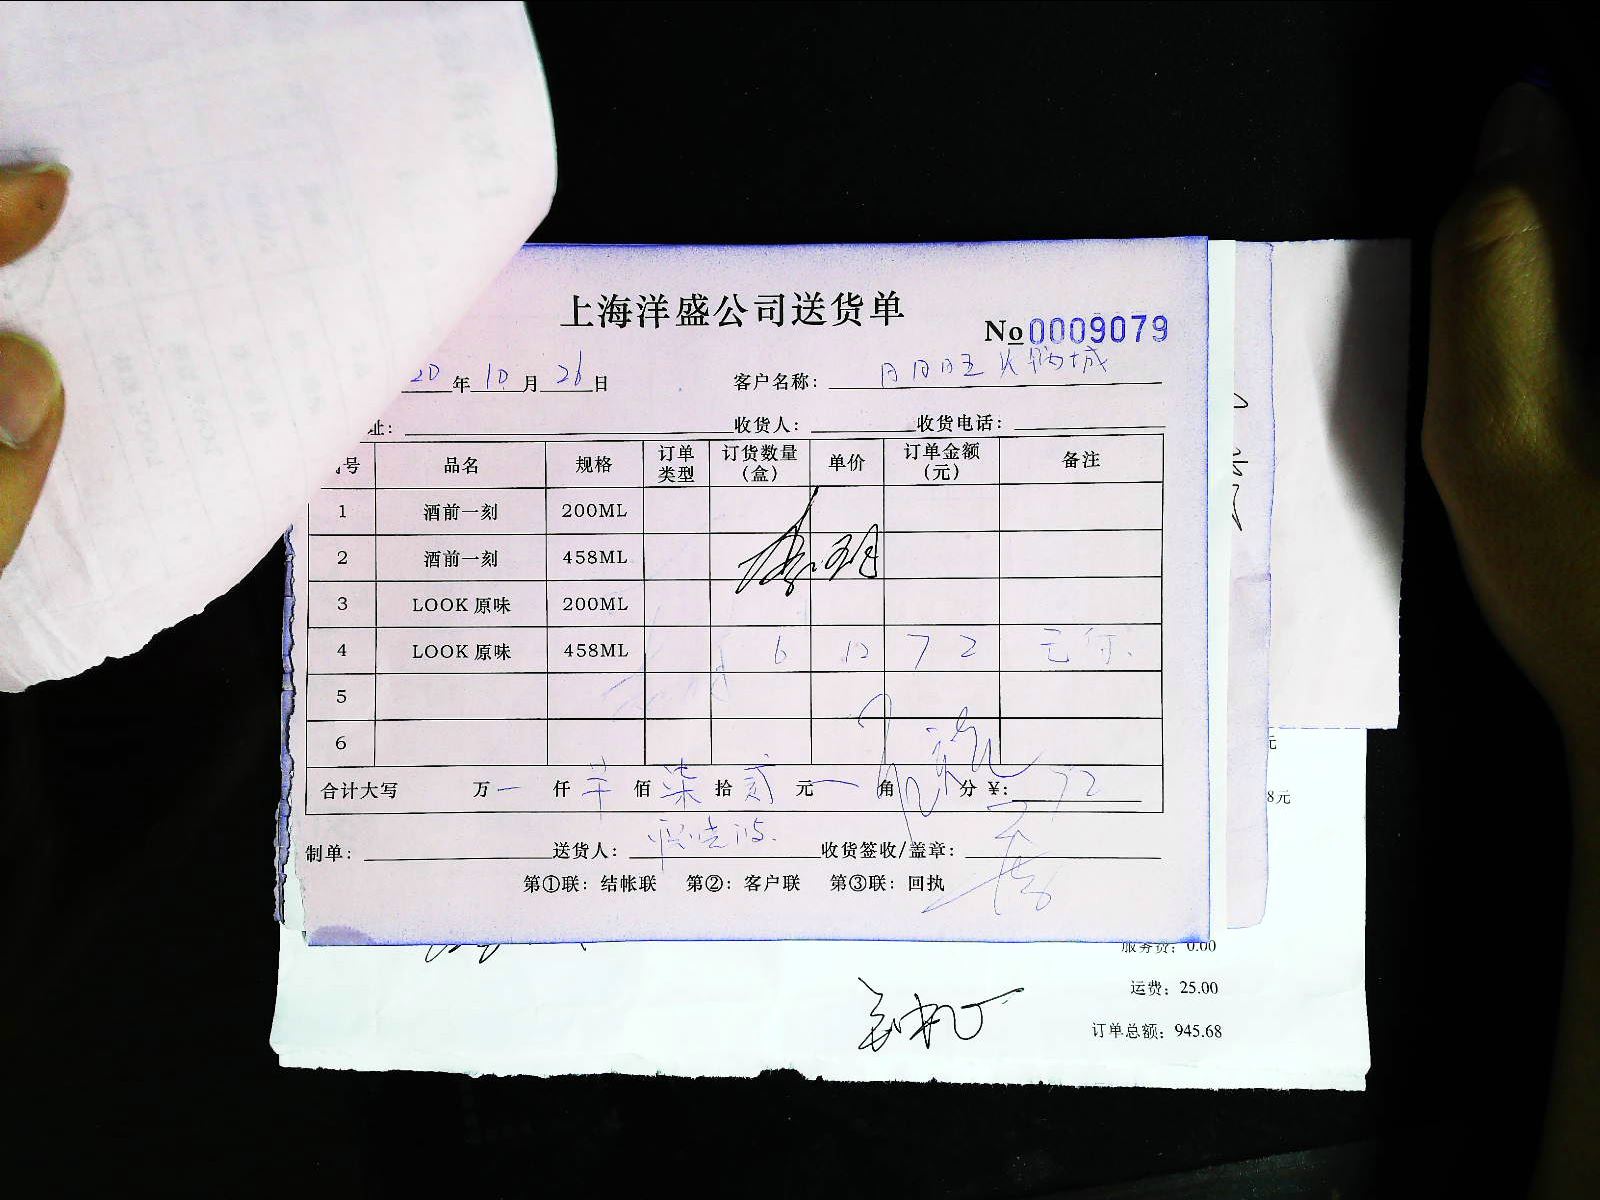 上海洋盛公司送货单
No 0009079
20 年 10 月 26 日 客户名称: 日日旺 购城
址: 收货人: 收货电话:
号 品名 规格 订单类型 订货数量(盒) 单价 订单金额(元) 备注
1 酒前一刻 200ML
2 酒前一刻 458ML
3 LOOK 原味 200ML
4 LOOK 原味 458ML 6 12 72 已付.
5
6
合计大写 万 一 仟 佰 柒 拾 贰 元 一 角 分 ¥: 72
制单: 送货人: 收货签收/盖章:
第①联: 结帐联 第②: 客户联 第③联: 回执
元
8元
服务费: 0.00
运费: 25.00
订单总额: 945.68